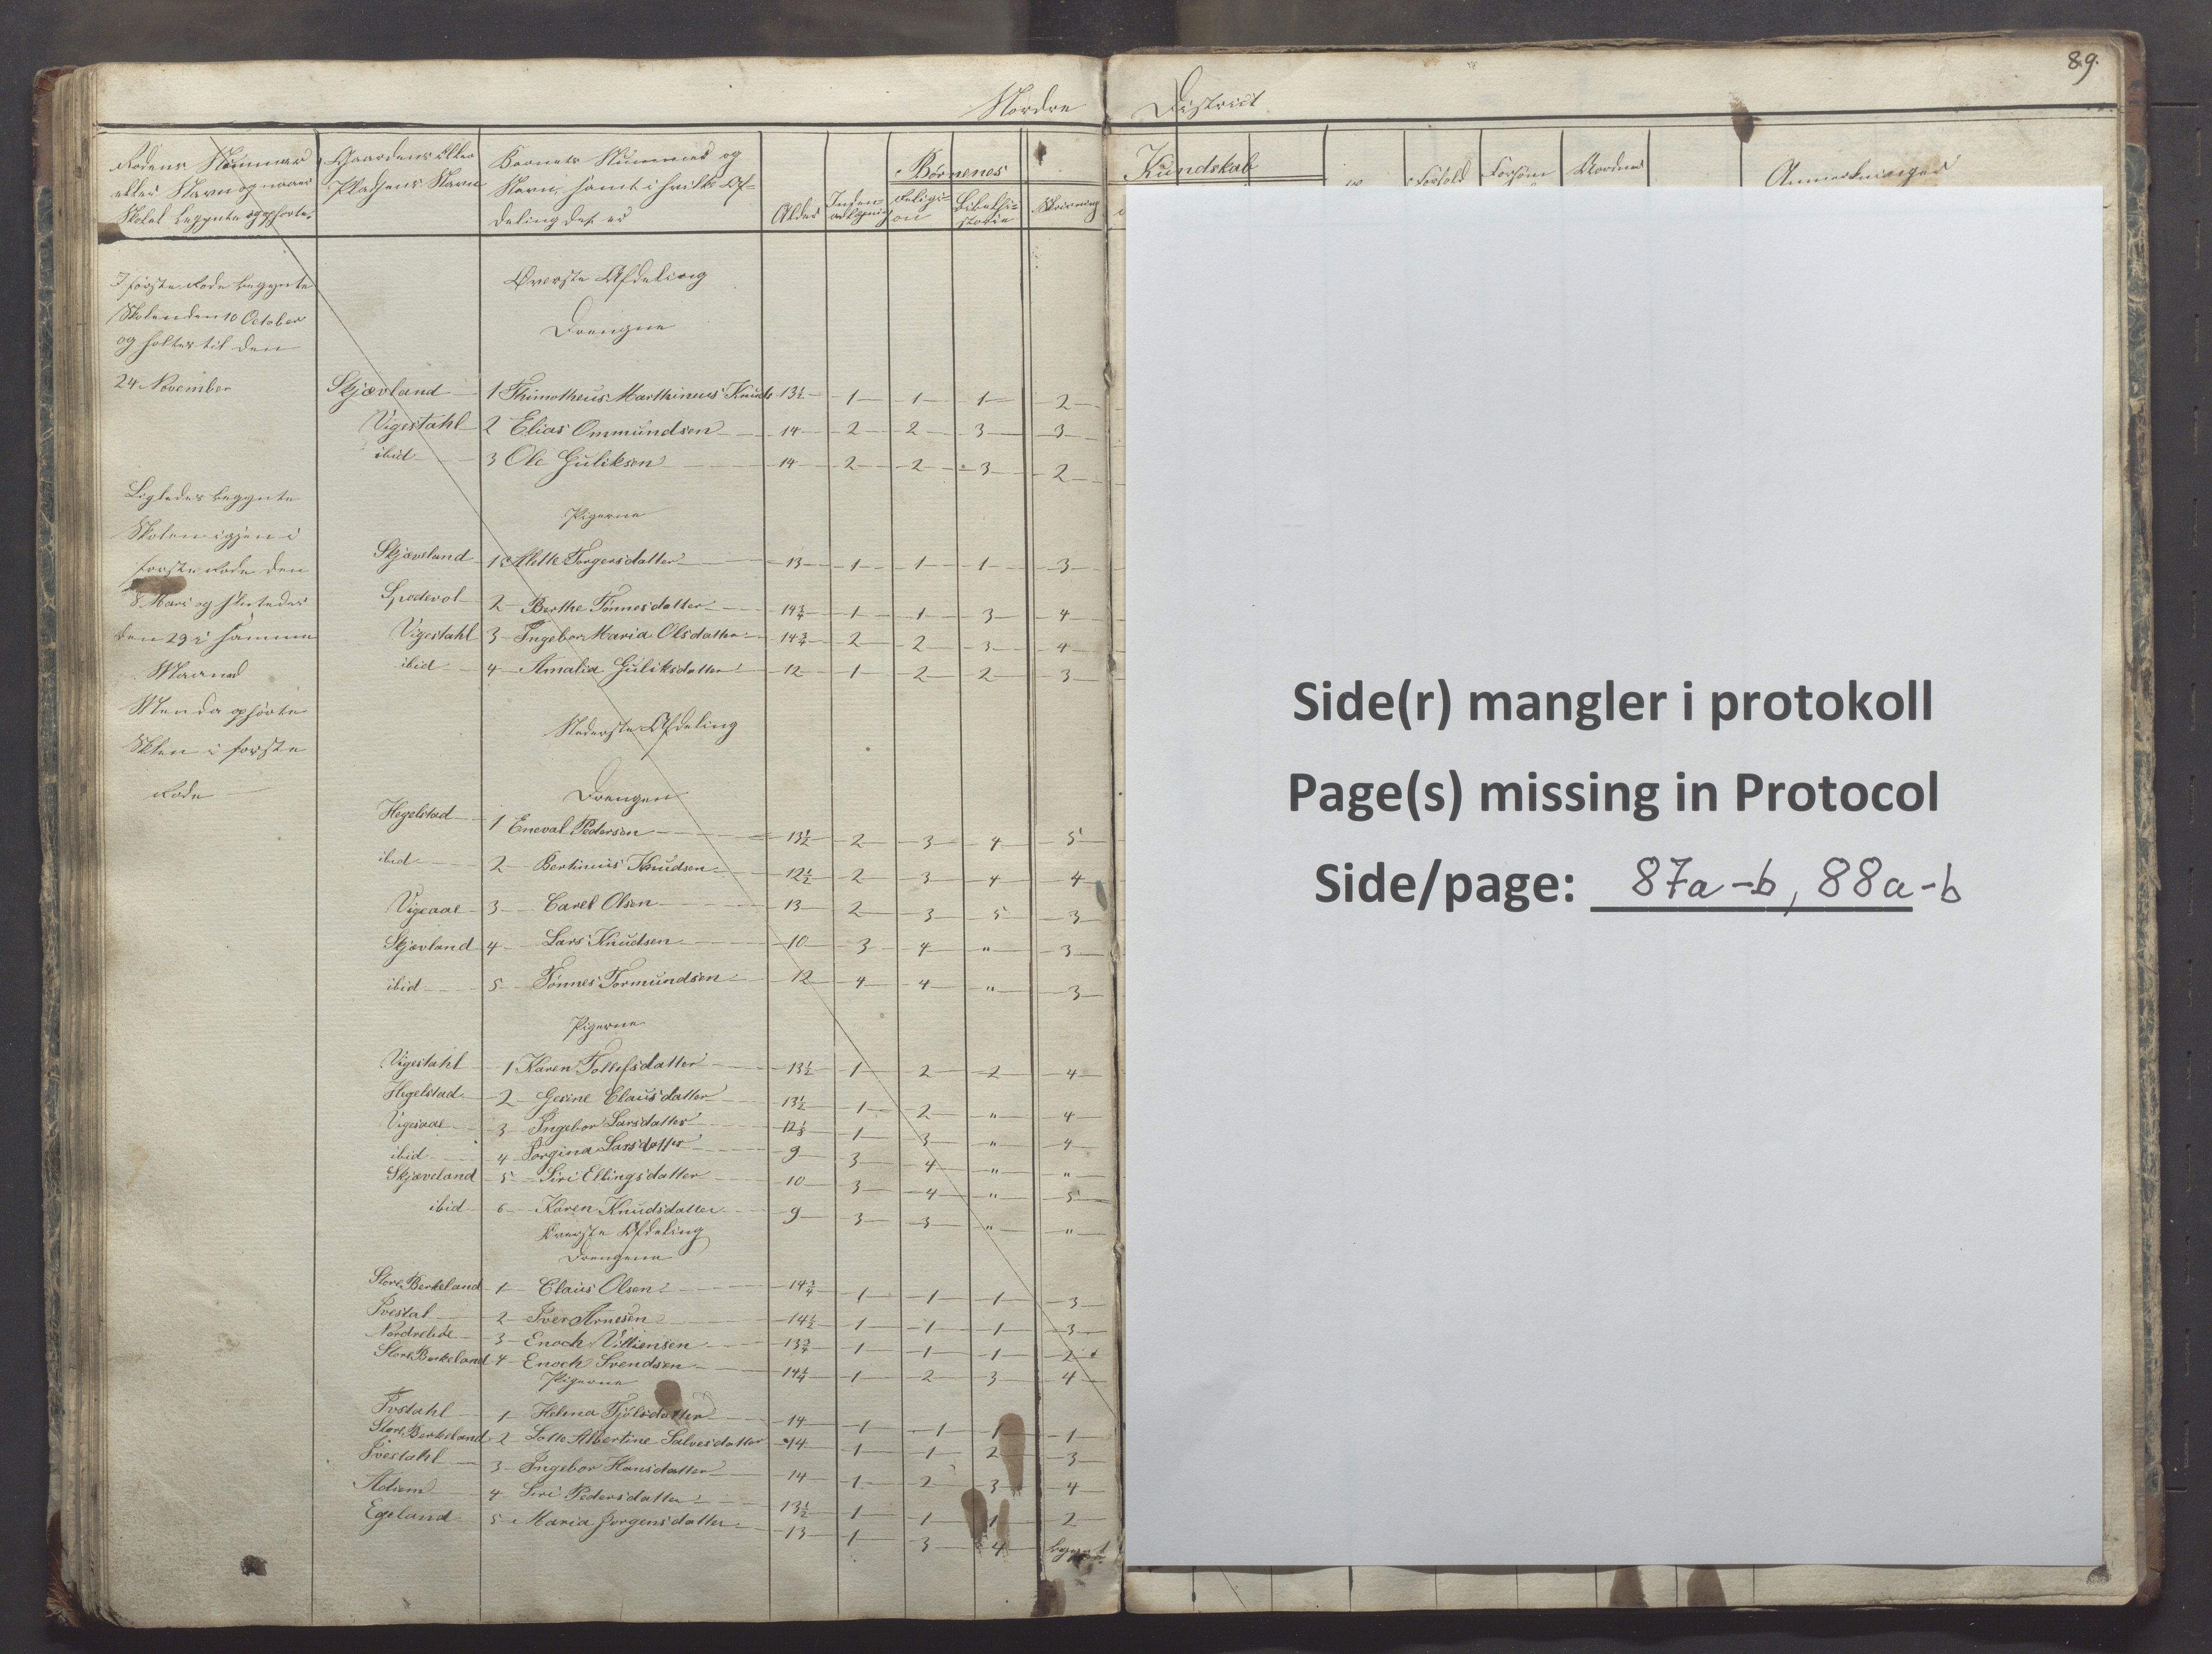 89.
Nordre District
Rodens Nummer eller Navn og naar Skolen begyndte og ophørte.
Gaardens eller Pladsens Navn
Barnets Nummer og Navn, samt i hvilk Afdeling det er
Alder
Børnenes Kundskab
Inden-
Religion
Bibelhistorie
Skrivning
Forhold
Anmerkninger
I første Rode begynte
Skolen den 10 October
og holtes til den
24 November
Øverste Afdeling
Drengne
Skjævland 1 Thimotheus Marthineus Knuds 13½ 1 1 1 2
Vigestahl 2 Elias Ommundsen 14 2 2 3 3
ibid 3 Ole Guliksen 14 2 2 3 2
Ligeledes begynte
Skolen igjen i
første Rode den
8 Mars og sluttedes
den 29 i samme
Maaned
Men da ophørte
Skolen i første
Rode
Pigerne
Skjæveland 1 Alette Torgersdatter 13 1 1 1 3
Spodevol 2 Berthe Tønnesdatter 14¾ 1 1 3 4
Vigestahl 3 Ingebor Maria Olsdatter 14¾ 2 2 3 4
ibid 4 Amalia Guliksdatter 12 1 2 2 3
Nederste Afdeling
Drengen
Hegelstad 1 Eneval Pedersen 13½ 2 3 4 5
ibid 2 Bertinius Knudsen 12½ 2 3 4 4
Vigeaae 3 Carel Olsen 13 2 3 5 3
Skjævland 4 Lars Knudsen 10 3 4 " 3
ibid 5 Tønnes Tormundsen 12 4 4 " 3
Pigerne
Vigestahl 1 Karen Tollefsdatter 13½ 1 2 2 4
Hegelstad 2 Gesine Clausdatter 13½ 1 2 " 4
Vigeaae 3 Ingebor Larsdatter 12½ 1 3 " 4
ibid 4 Jorgina Larsdatter 9 3 4 " "
Skjæveland 5 Siri Ellingsdatter 10 3 4 " 5
ibid 6 Karen Knudsdatter 9 3 3 " "
Øverste Afdeling
Drengene
Store Berkeland 1 Claus Olsen 14¾ 1 1 1 3
Ivestal 2 Iver Arnesen 14½ 1 1 1 3
3 Enoch Villiensen 13¾ 1 1 1 2
Store Berkeland 4 Enoch Svendsen 14¼ 1 2 3 4
Pigerne
Ivstahl 1 Helena Fjølsdatter 14 1 1 1 1
Store Berkeland 2 Lotte Albertine Salvesdatter 14 1 1 2 3
Ivestahl 3 Ingebor Hansdatter 14 1 2 3 4
4 Siri Pedersdatter 13½ 1 1 1 2
Egeland 5 Maria Jørgensdatter 13 1 3 4 begynt
Side(r) mangler i protokoll
Page(s) missing in Protocol
Side/page: 87a-b, 88a-b